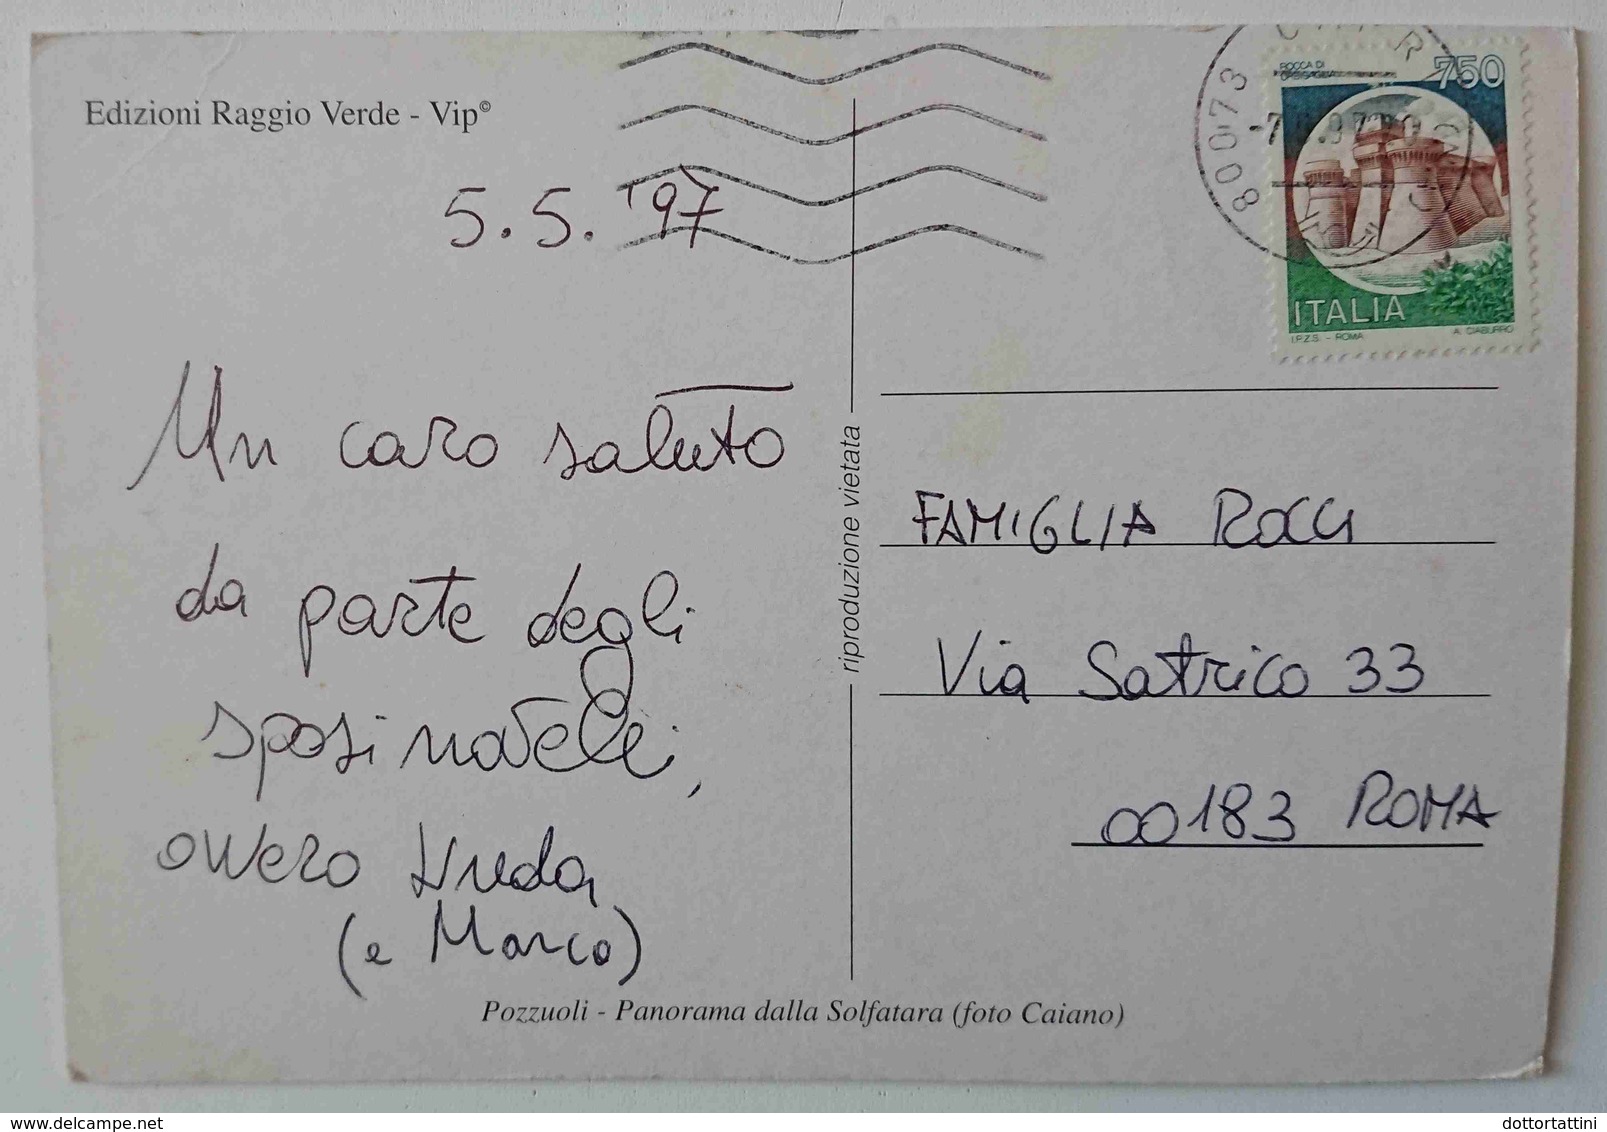 Edizioni Raggio Verde - Vip©
5.5.'97
Un caro saluto
da parte degli
sposi novelli,
ovvero
(e Marco)
riproduzione vietata
80073
ROCCA DI
750
ITALIA
I.P.Z.S. - ROMA
A. CIABURRO
FAMIGLIA ROCCI
Via Satrico 33
00183 ROMA
Pozzuoli - Panorama dalla Solfatara (foto Caiano)
delcampe.net
dottortattini